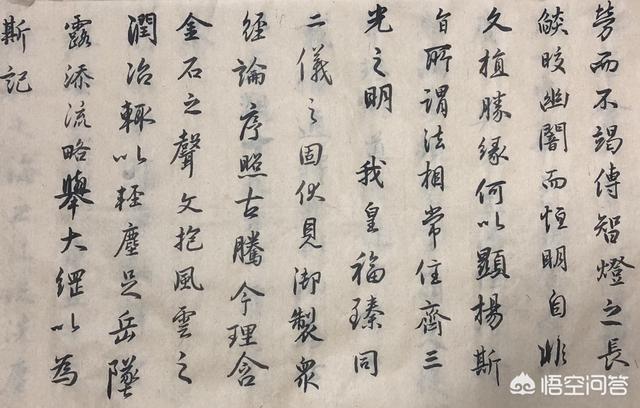 勞而不竭傳智燈之長
燄皎幽闇而恒明自非
久植勝緣何以顯揚斯
旨所謂法相常住齊三
光之明 我皇福臻同
二儀之固伏見御製眾
經論序照古騰今理含
金石之聲文抱風雲之
潤治輒以輕塵足岳墜
露添流略舉大綱以為
斯記
悟空问答